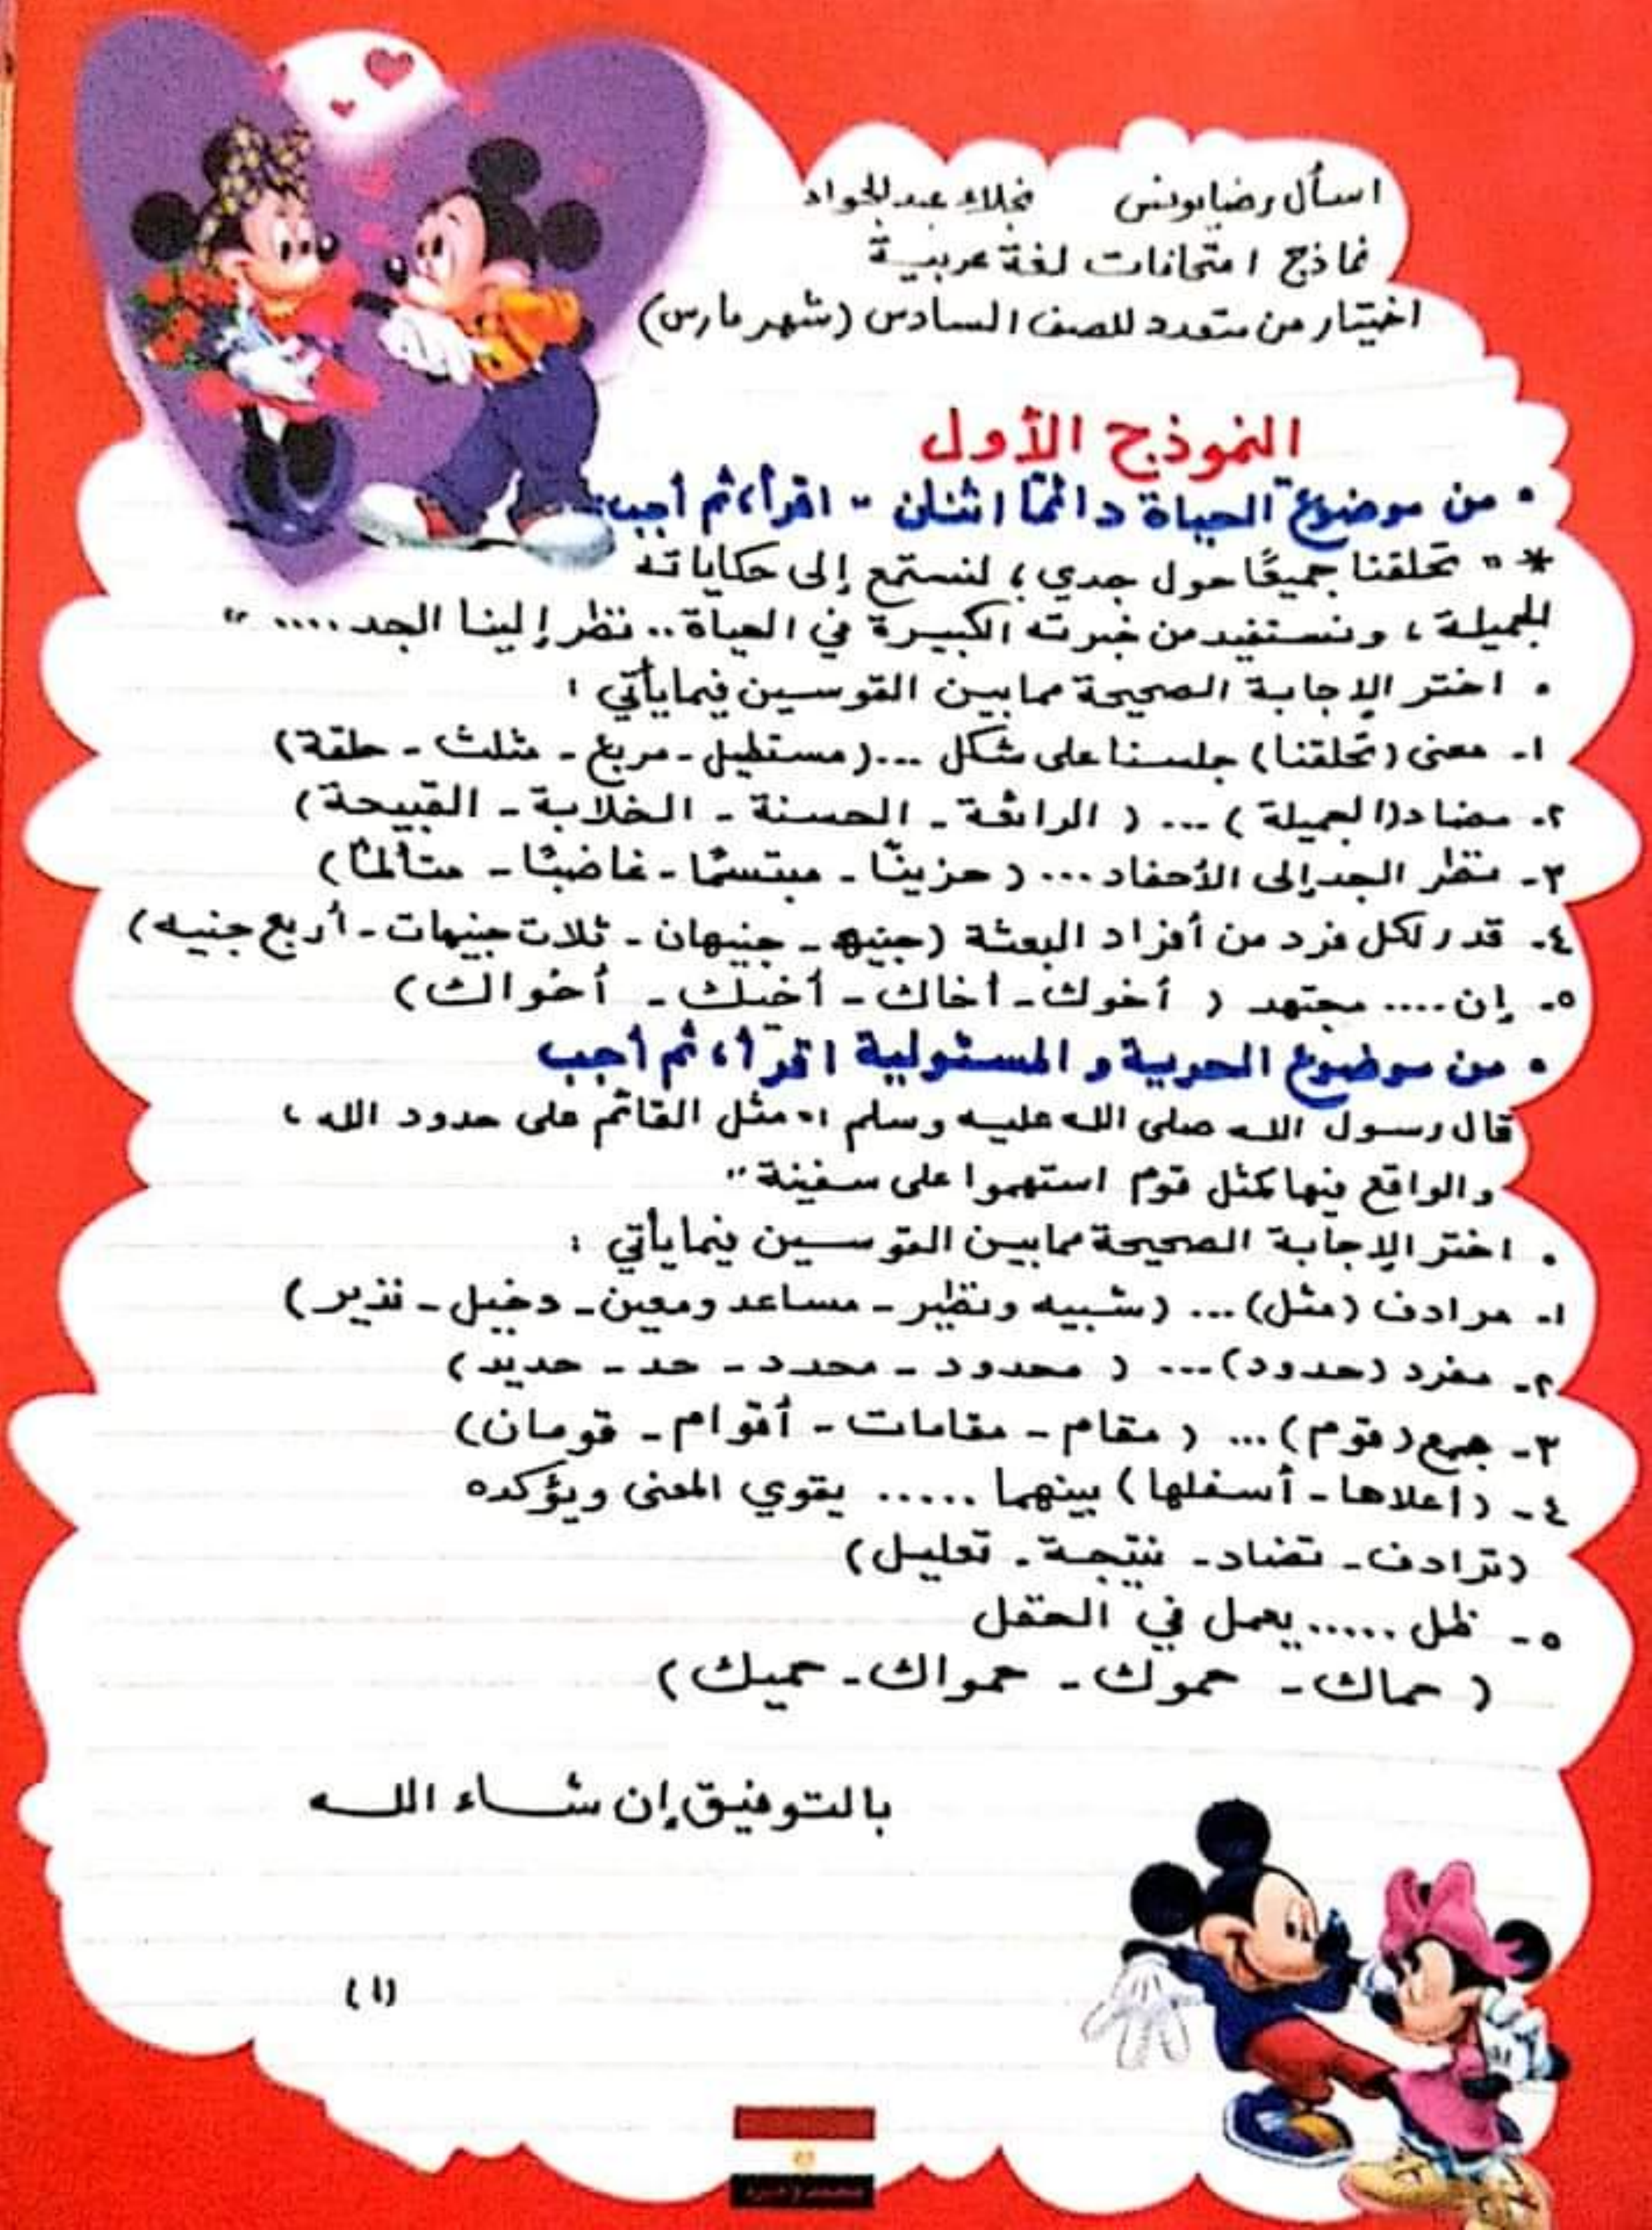 اسأل رضا يونس نجلاء عبد الجواد
نماذج امتحانات لغة عربية
اختيار من متعدد للصف السادس (شهر مارس)
النموذج الأول
• من موضوع "الحياة دائمًا اثنان" اقرأ، ثم أجب:
* " تحلقنا جميعًا حول جدي؛ لنستمع إلى حكاياته
الجميلة، ونستفيد من خبرته الكبيرة في الحياة.. نظر إلينا الجد .... "
• اختر الإجابة الصحيحة مما بين القوسين فيما يأتي :
١- معنى (تحلقنا) جلسنا على شكل ...(مستطيل - مربع - مثلث - حلقة)
٢- مضاد (الجميلة) ... ( الرائعة - الحسنة - الخلابة - القبيحة)
٣- نظر الجد إلى الأحفاد ... ( حزينًا - مبتسمًا - غاضبًا - متألمًا)
٤- قدر لكل فرد من أفراد البعثة (جنيه - جنيهان - ثلاث جنيهات - أربع جنيه)
٥- إن .... مجتهد ( أخوك - أخاك - أخيك - أخواك)
• من موضوع الحرية و المسئولية اقرأ، ثم أجب
قال رسول الله صلى الله عليه وسلم :" مثل القائم على حدود الله ،
والواقع فيها كمثل قوم استهموا على سفينة "
• اختر الإجابة الصحيحة مما بين القوسين فيما يأتي :
١- مرادف (مثل) ... (شبيه ونظير - مساعد ومعين - دخيل - نذير)
٢- مفرد (حدود) ... ( محدود - محدد - حد - حديد)
٣- جمع (قوم) ... ( مقام - مقامات - أقوام - قومان)
٤- (أعلاها - أسفلها) بينهما ..... يقوي المعنى ويؤكده
(ترادف - تضاد - نتيجة - تعليل)
٥- ظل ..... يعمل في الحقل
( حماك - حموك - حمواك - حميك)
بالتوفيق إن شاء الله
(١)